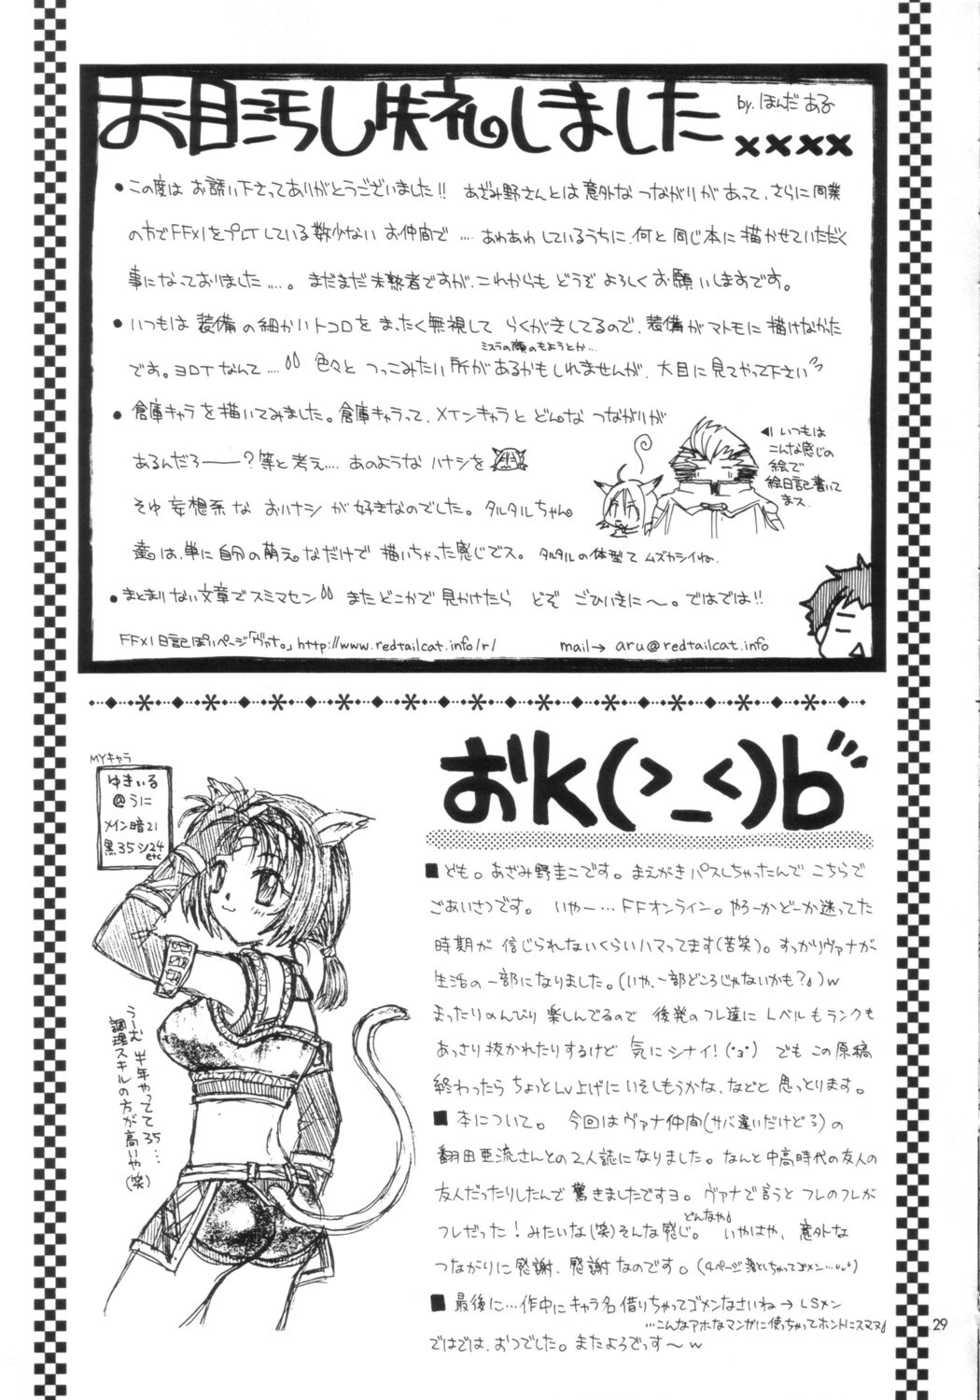 お目汚し失礼しました
by. ほんだ ある
××××
●この度は お誘い下さってありがとうございました!! あざみ野さんとは意外な つながりがあって、さらに同業
の方でFFXIをプレイしている数少ない お仲間で .... あわあわしているうちに、何と同じ本に描かせていただく
事になっておりました....。 まだまだ未熟者ですが、これからも どうぞ よろしく お願いしますです。
●いつもは 装備の細かいトコロを まったく無視して らくがきしてるので、装備がマトモに描けなかった
ミスラの顔のもようとか...
です。ヨロイなんて.... 色々と つっこみたい所があるかもしれませんが、大目に見てやって下さい
●倉庫キャラを描いてみました。倉庫キャラって、メインキャラと どんな つながりが
あるんだろ———?等と考え.... あのような ハナシを
そゆ 妄想系な おハナシ が好きなのでした。タルタルちゃん。
達は、単に自分の萌え。なだけで 描いちゃった感じでス。タルタルの体型て ムズカシイね。
◀いつもは
こんな感じの
絵で
絵日記書いて
まス。
●まとまりない文章でスミマセン また どこかで 見かけたら どぞ ごひいきに〜。ではでは!!
FFXI日記ぽいページ「ヴァナ。」http://www.redtailcat.info/r/
mail→ aru@redtailcat.info
MYキャラ
ゆきいる
@うに
メイン暗21
黒35 シ24
etc
うーむ 半年やってて35...
調理スキルの方が高いや(笑)
おk(>_<)b
■ども。あざみ野圭こです。まえがきパスしちゃったんで こちらで
ごあいさつです。 いやー…FFオンライン。やろーかどーか迷ってた
時期が 信じられないくらいハマってます(苦笑)。すっかりヴァナが
生活の一部になりました。(いや、一部どころじゃないかも?♪)w
まったりのんびり 楽しんでるので 後発のフレ達に Lベルもランクも
あっさり抜かれたりするけど 気にシナイ!(°3°) でも この原稿
終わったら ちょっとLv上げに いそしもうかな、などと 思っとります。
■本について。 今回はヴァナ仲間(サバ違いだけどろ)の
翻田亜流さんとの2人誌になりました。なんと中高時代の友人の
友人だったりしたんで 驚きましたですヨ。ヴァナで言うと フレのフレが
フレだった!みたいな(笑)そんな感じ。 いやはや、意外な
どんなや♪
つながりに感謝、感謝なのです。(4ページ落としちゃってゴメン…)
■最後に…作中にキャラ名 借りちゃってゴメンなさいね→LSメン
…こんなアホなマンガに使っちゃってホントにスマヌ♪
ではでは、おつでした。またよろでっす〜w
29